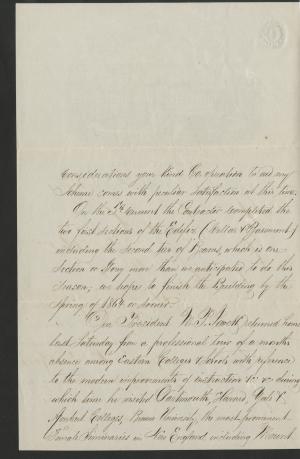 considerations your kind Co-operation to aid my
scheme comes with peculiar satisfaction at this time.
On the 5th instant the Contractor completed the
two first sections of the Edifice (Cellar & Basement)
including the second tier of Beams, which is one
Section or Story more than we anticipated to do this
Season; we hope to finish the Building by the
Spring of 1864 or sooner.
Our President M. P. Jewett returned from
last Saturday from a professional tour of a months
absence among Eastern Colleges & Schools with reference
to the modern improvements of instruction &c &c during
which time he visited Dartmouth, Harvard, Yale &
Amherst Colleges, Brown University, the most prominent
Female Seminaries in New England including Mount